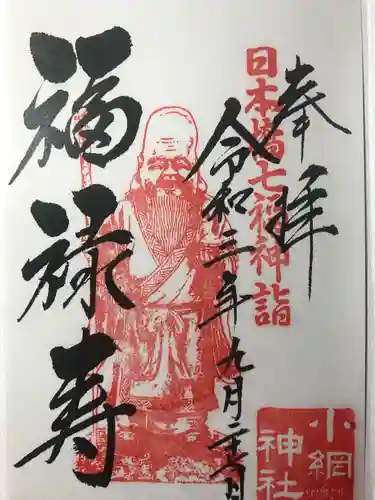 奉拝
日本橋七福神詣
令和三年九月二十
福禄寿
小網
神社